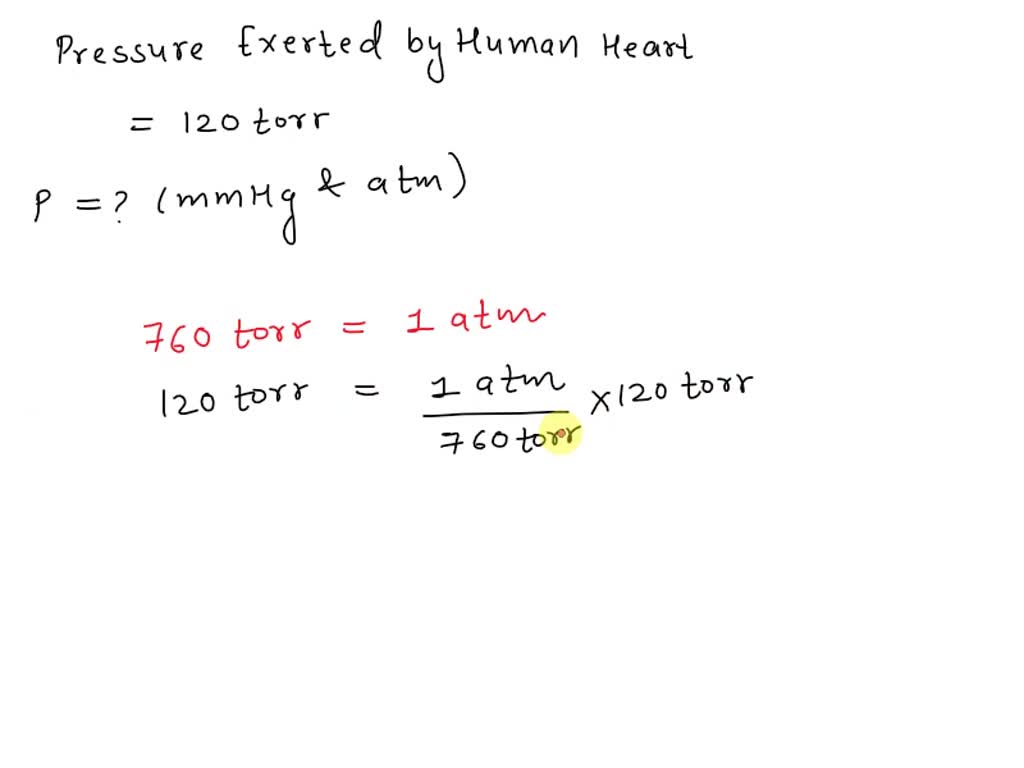 Pressure Exerted by Human Heart
= 120 torr
P = ? (mmHg & atm)
760 torr = 1 atm
120 torr = 1 atm / 760 torr × 120 torr